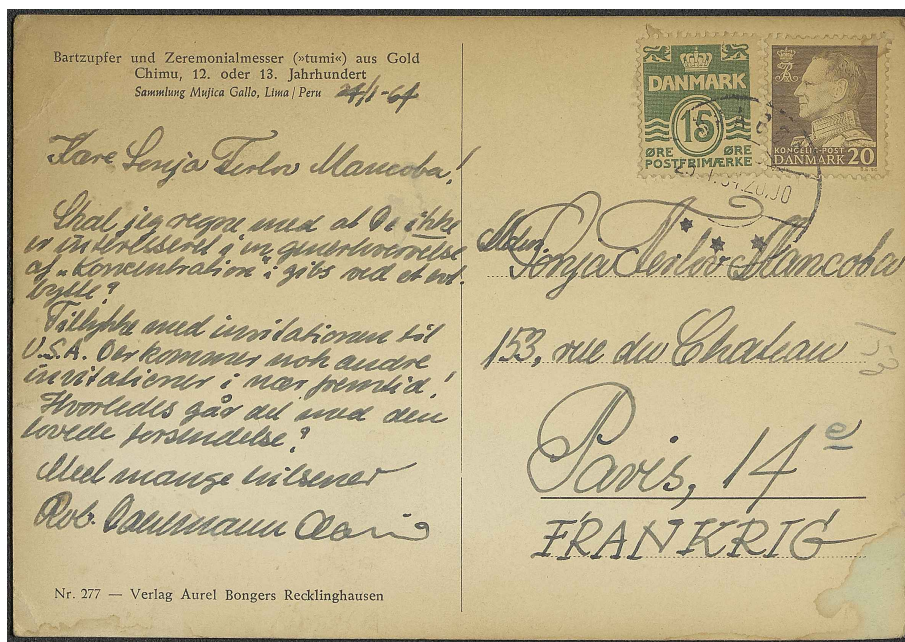 Bartzupfer und Zeremonialmesser (»tumi«) aus Gold
Chimu, 12. oder 13. Jahrhundert
Sammlung Mujica Gallo, Lima / Peru
24/1-64
Kære Sonja Ferlov Mancoba!
Skal jeg regne med at De ikke
er interesseret i en generhvervelse
af „Koncentration“ i gibs ved et
bytte?
Tillykke med invitationen til
U.S.A. Der kommer nok andre
invitationer i nær fremtid!
Hvorledes går det med den
lovede forsendelse?
Med mange hilsener
Rob. Dahlmann Olsen
Nr. 277 — Verlag Aurel Bongers Recklinghausen
DANMARK
15
ØRE ØRE
POSTFRIMÆRKE
KONGELIG POST
DANMARK 20
Sonja Ferlov Mancoba
153, rue du Chateau
Paris, 14e
FRANKRIG
153